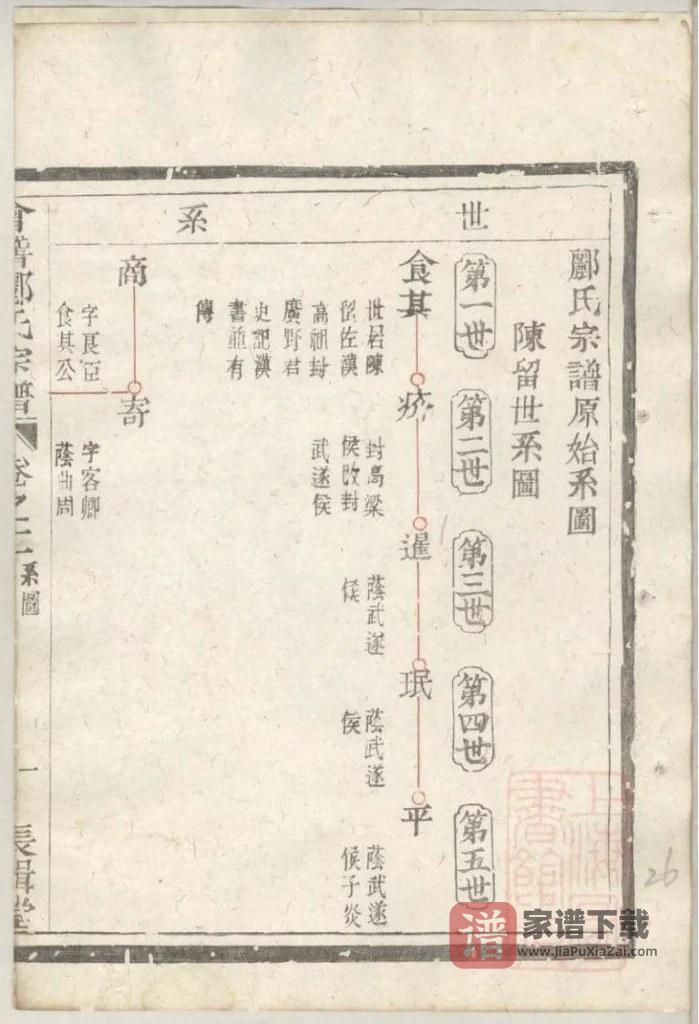 酈氏宗譜原始系圖
陳留世系圖
世系
第一世
第二世
第三世
第四世
第五世
食其
世居陳
留佐漢
高祖封
廣野君
史記漢
書並有
傳
疥
封高梁
侯改封
武遂侯
暹
蔭武遂
侯
珉
蔭武遂
侯
平
蔭武遂
侯子炎
商
字長臣
食其公
寄
字客卿
蔭曲周
酈氏宗譜
系圖
一
長
26
家谱下载
www.JiaPuXiaZai.com
谱